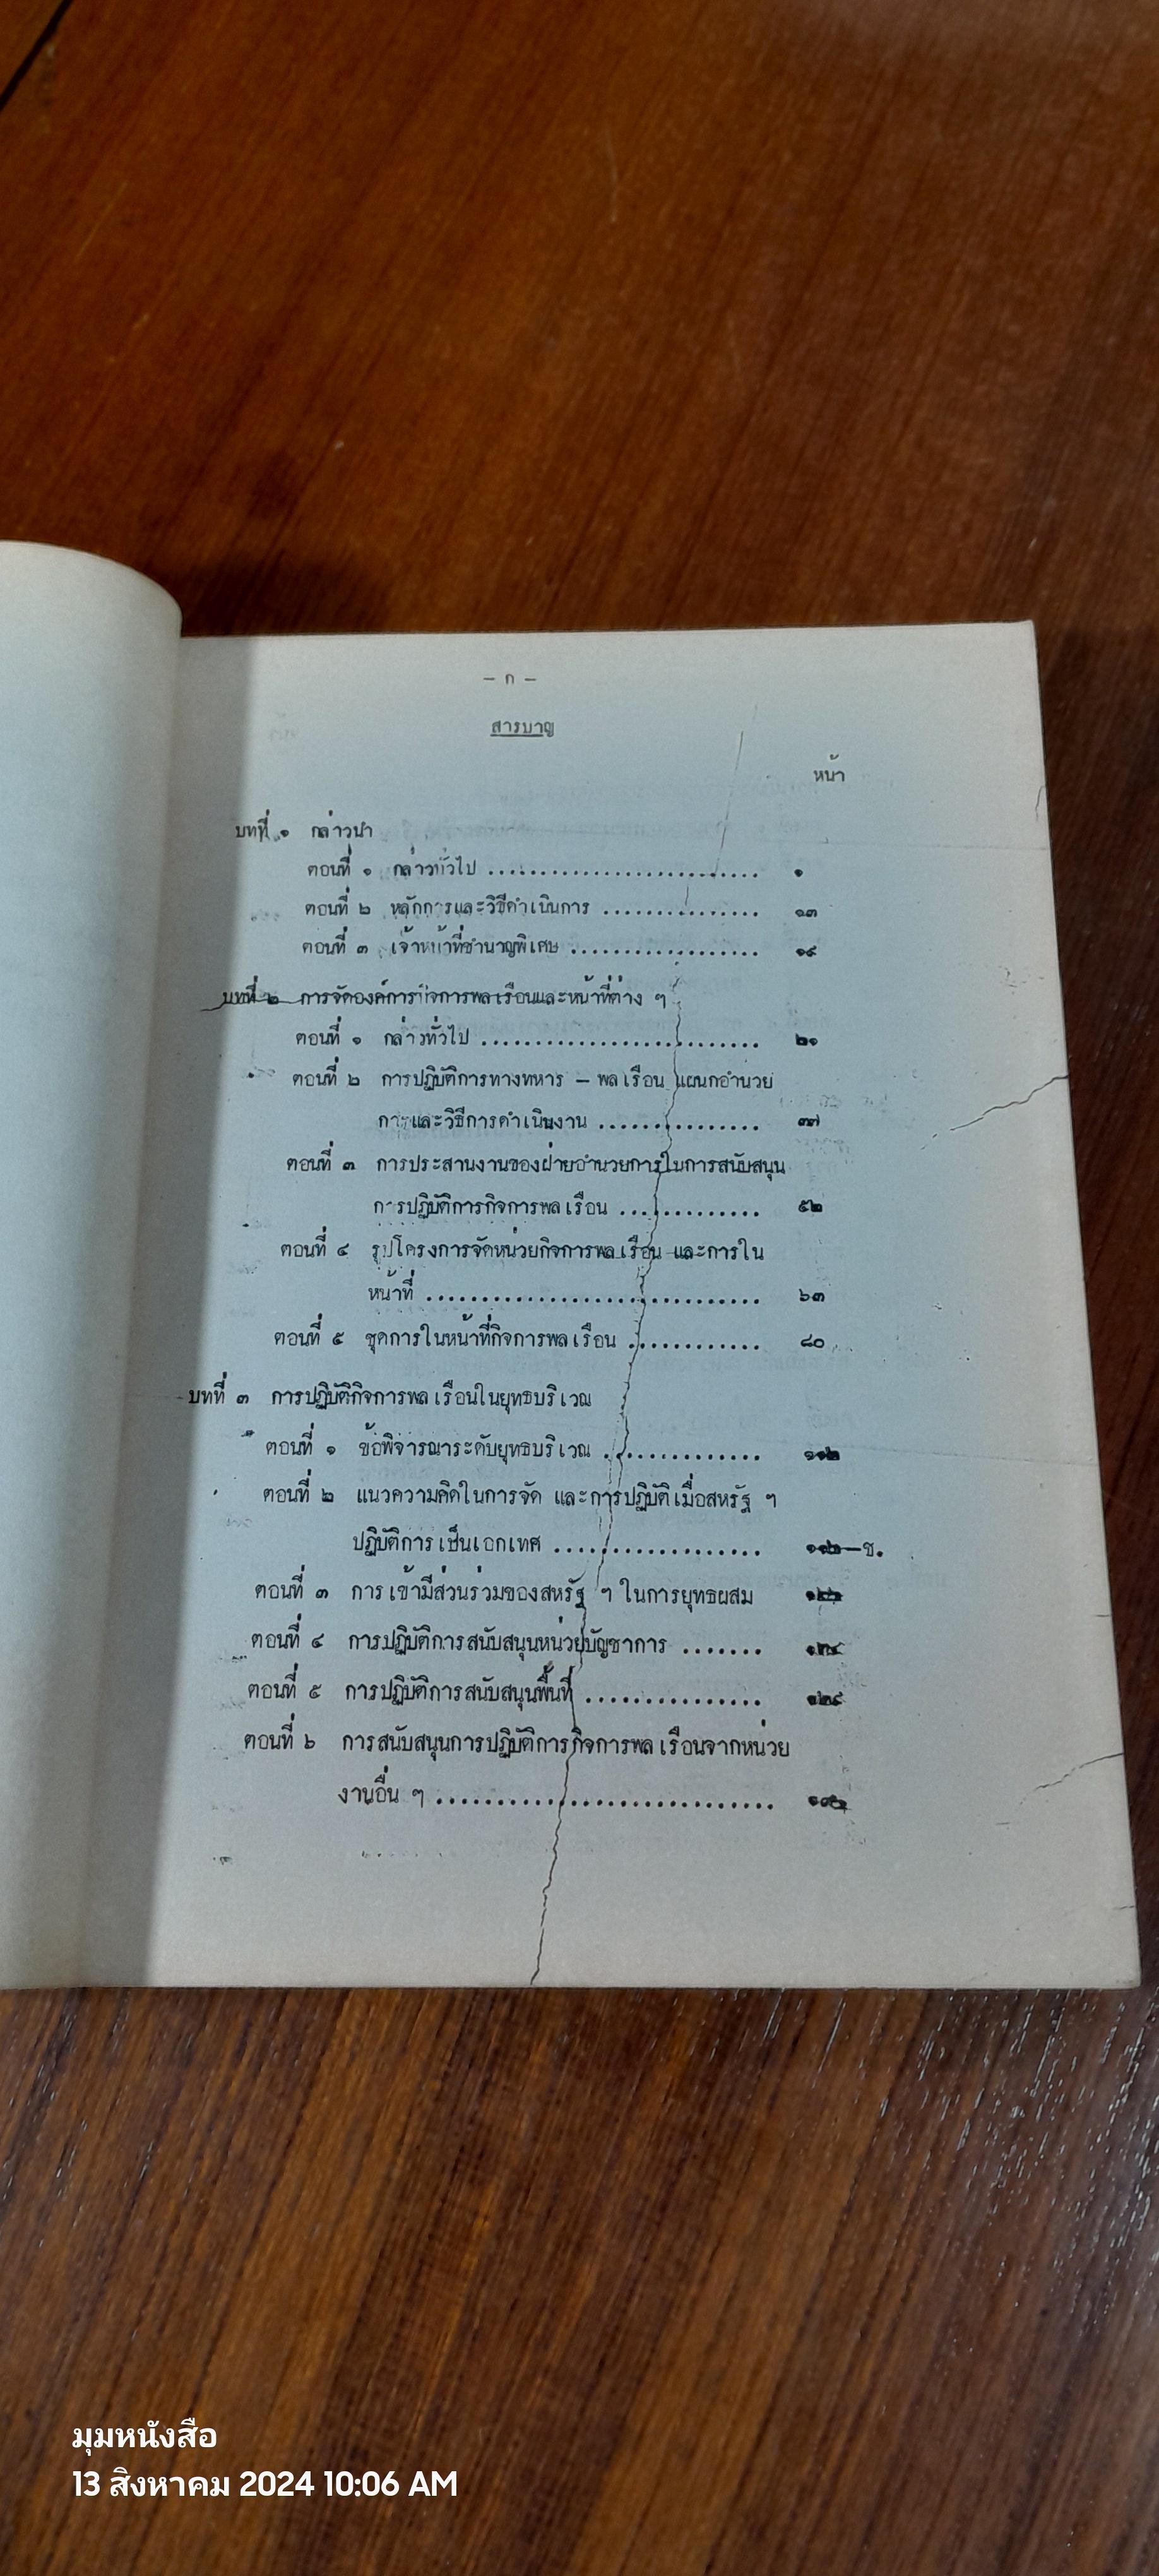 – ก –
สารบาญ
หน้า
บทที่ ๑ กล่าวนำ
ตอนที่ ๑ กล่าวทั่วไป .......................... ๑
ตอนที่ ๒ หลักการและวิธีดำเนินการ ............... ๑๓
ตอนที่ ๓ เจ้าหน้าที่ชำนาญพิเศษ ..................
บทที่ ๒ การจัดองค์การกิจการพลเรือนและหน้าที่ต่าง ๆ
ตอนที่ ๑ กล่าวทั่วไป .......................... ๒๑
ตอนที่ ๒ การปฏิบัติการทางทหาร – พลเรือน แผนกอำนวย
การและวิธีการดำเนินงาน ............... ๓๗
ตอนที่ ๓ การประสานงานของฝ่ายอำนวยการในการสนับสนุน
การปฏิบัติการกิจการพลเรือน ............. ๕๒
ตอนที่ ๔ รูปโครงการจัดหน่วยกิจการพลเรือน และการใน
หน้าที่ .............................. ๖๓
ตอนที่ ๕ ชุดการในหน้าที่กิจการพลเรือน ............ ๘๐
บทที่ ๓ การปฏิบัติกิจการพลเรือนในยุทธบริเวณ
ตอนที่ ๑ ข้อพิจารณาระดับยุทธบริเวณ ..............
ตอนที่ ๒ แนวความคิดในการจัด และการปฏิบัติเมื่อสหรัฐ ๆ
ปฏิบัติการเป็นเอกเทศ .................. –ช.
ตอนที่ ๓ การเข้ามีส่วนร่วมของสหรัฐ ๆ ในการยุทธผสม
ตอนที่ ๔ การปฏิบัติการสนับสนุนหน่วยบัญชาการ .......
ตอนที่ ๕ การปฏิบัติการสนับสนุนพื้นที่ ...............
ตอนที่ ๖ การสนับสนุนการปฏิบัติการกิจการพลเรือนจากหน่วย
งานอื่น ๆ .............................
มุมหนังสือ
13 สิงหาคม 2024 10:06 AM